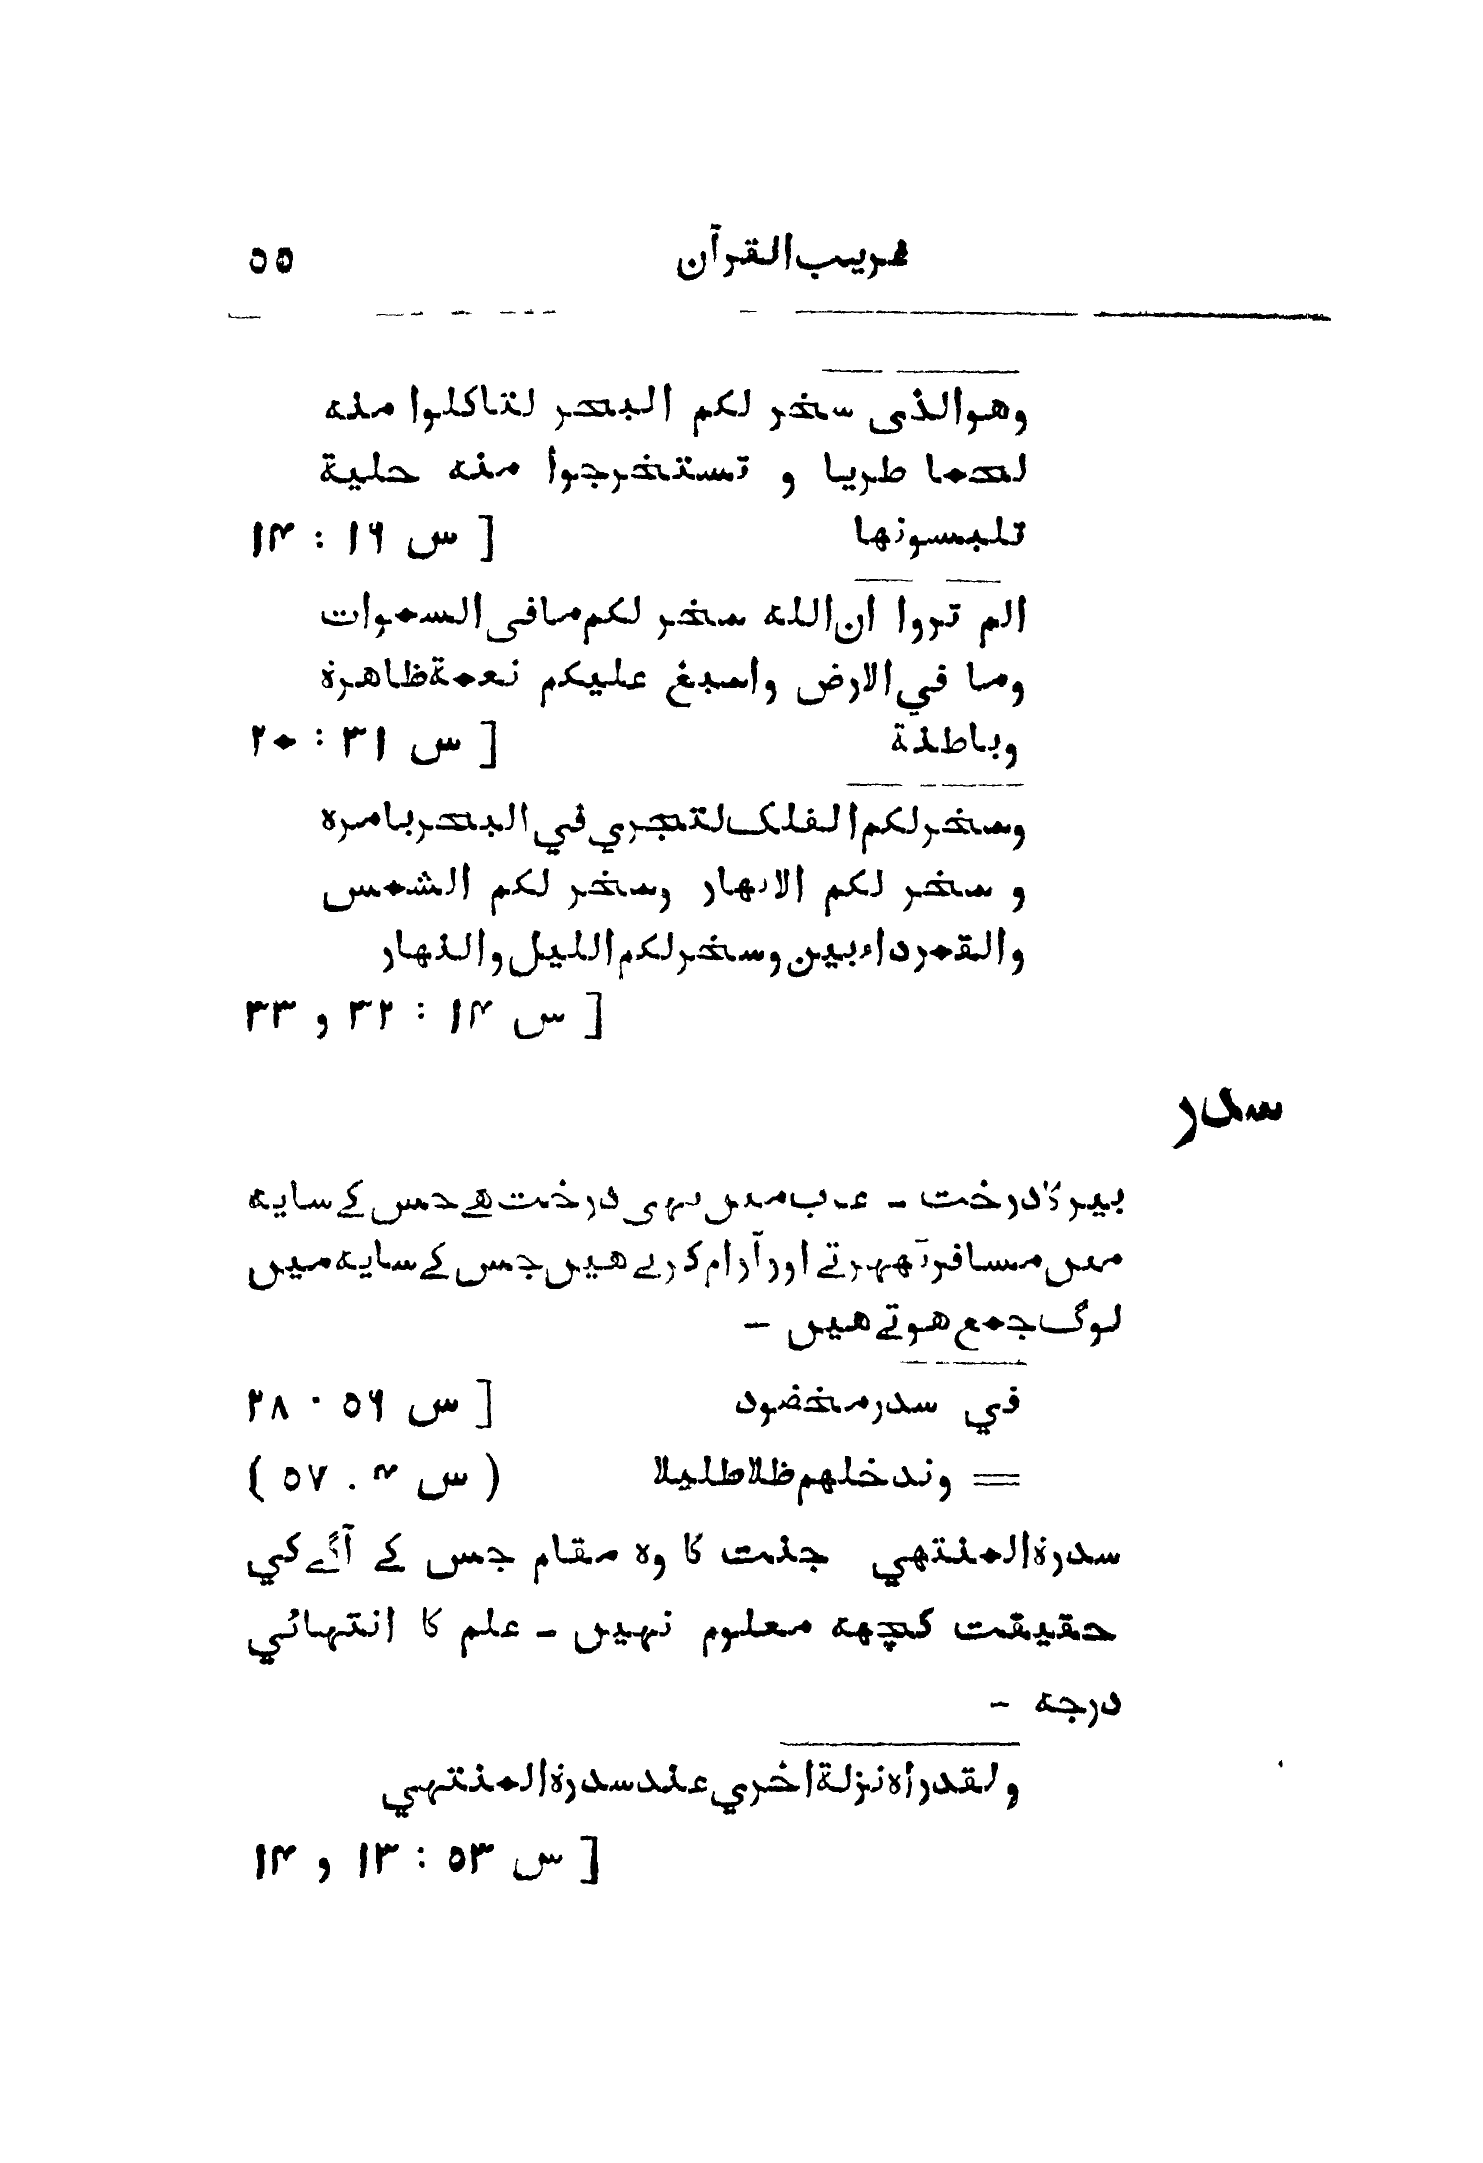 غریب القرآن ۵۵
وهوالذی سخر لکم البحر لتاکلوا منه
لحما طریا و تستخرجوا منه حلیة
تلبسونها [ س ۱۶ : ۱۴
الم تروا ان الله سخر لکم مافی السموات
وما في الارض واسبغ علیکم نعمة ظاهرة
وباطنة [ س ۳۱ : ۲۰
وسخرلکم الفلک لتجري في البحر بامره
و سخر لکم الانهار وسخر لکم الشمس
والقمر داءبین وسخرلکم اللیل والنهار
[ س ۱۴ : ۳۲ و ۳۳
سدر
بیر کا درخت - عرب میں یہی درخت ھے جس کے سایہ
میں مسافر ٹھہرتے اور آرام کرتے ھیں جس کے سایہ میں
لوگ جمع ھوتے ھیں -
في سدر مخضود [ س ۵۶ : ۲۸
= وندخلهم ظلا ظلیلا ( س ۴ : ۵۷ )
سدرة المنتهي جنت کا وہ مقام جس کے آگے کي
حقیقت کچھہ معلوم نہیں - علم کا انتہائي
درجہ -
ولقد رأه نزلة اخري عند سدرة المنتهي
[ س ۵۳ : ۱۳ و ۱۴